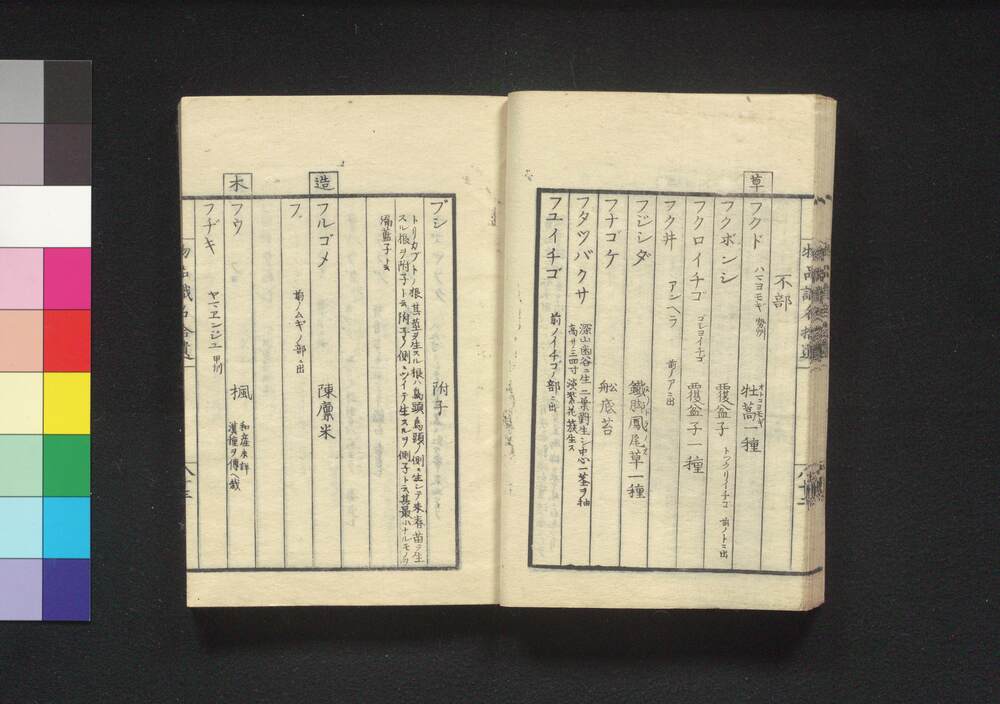 不部
草
フクド ハマヨモギ 勢州 牡蒿一種 オトコヨモギ
フクボンシ 覆盆子 トツクリイチゴ 前ノトニ出
フクロイチゴ ゴレヨイチゴ 覆盆子一種
フク井 アンペラ 前ノアニ出
フジシダ 鐵脚鳳尾草一種
フナゴケ 船底苔
フタツバクサ 深山幽谷ニ生二葉對生シ中心一莖ヲ抽
高サ三四寸淡紫花簇生ス
フユイチゴ 前ノイチゴノ部ニ出
ブシ 附子
トリカブトノ根其莖ヲ生スル根ハ烏頭烏頭ノ側ニ生シテ来春苗ヲ生
スル根ヲ附子ト云附子ノ側ニツイテ生スルヲ側子ト云其最小ナルモノヲ
漏藍子ト云
造
フルゴメ 陳廩米
フ 前ノムギノ部ニ出
木
フウ 楓 和産未詳
漢種ヲ傳ヘ栽
フヂキ ヤマヱンジユ 甲州
物品識名拾遺